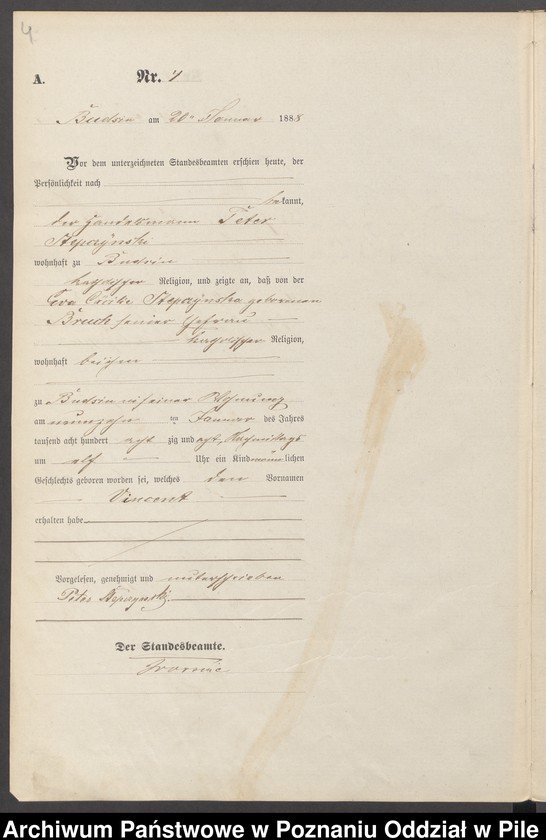 4
A. Nr. 4
Budsin am 20n Januar 1888
Vor dem unterzeichneten Standesbeamten erschien heute, der
Persönlichkeit nach
bekannt,
der Handelsmann Peter
wohnhaft zu Budsin
katholischer Religion, und zeigte an, daß von der
Eva Cecilie geborenen
seiner Ehefrau
katholischer Religion,
wohnhaft bei ihm
zu Budsin in seiner Wohnung
am neunzehn ten Januar des Jahres
tausend acht hundert acht zig und acht, Nachmittags
um elf Uhr ein Kind männlichen
Geschlechts geboren worden sei, welches den Vornamen
Vincent
erhalten habe
Vorgelesen, genehmigt und unterschrieben
Peter
Der Standesbeamte.
Archiwum Państwowe w Poznaniu Oddział w Pile